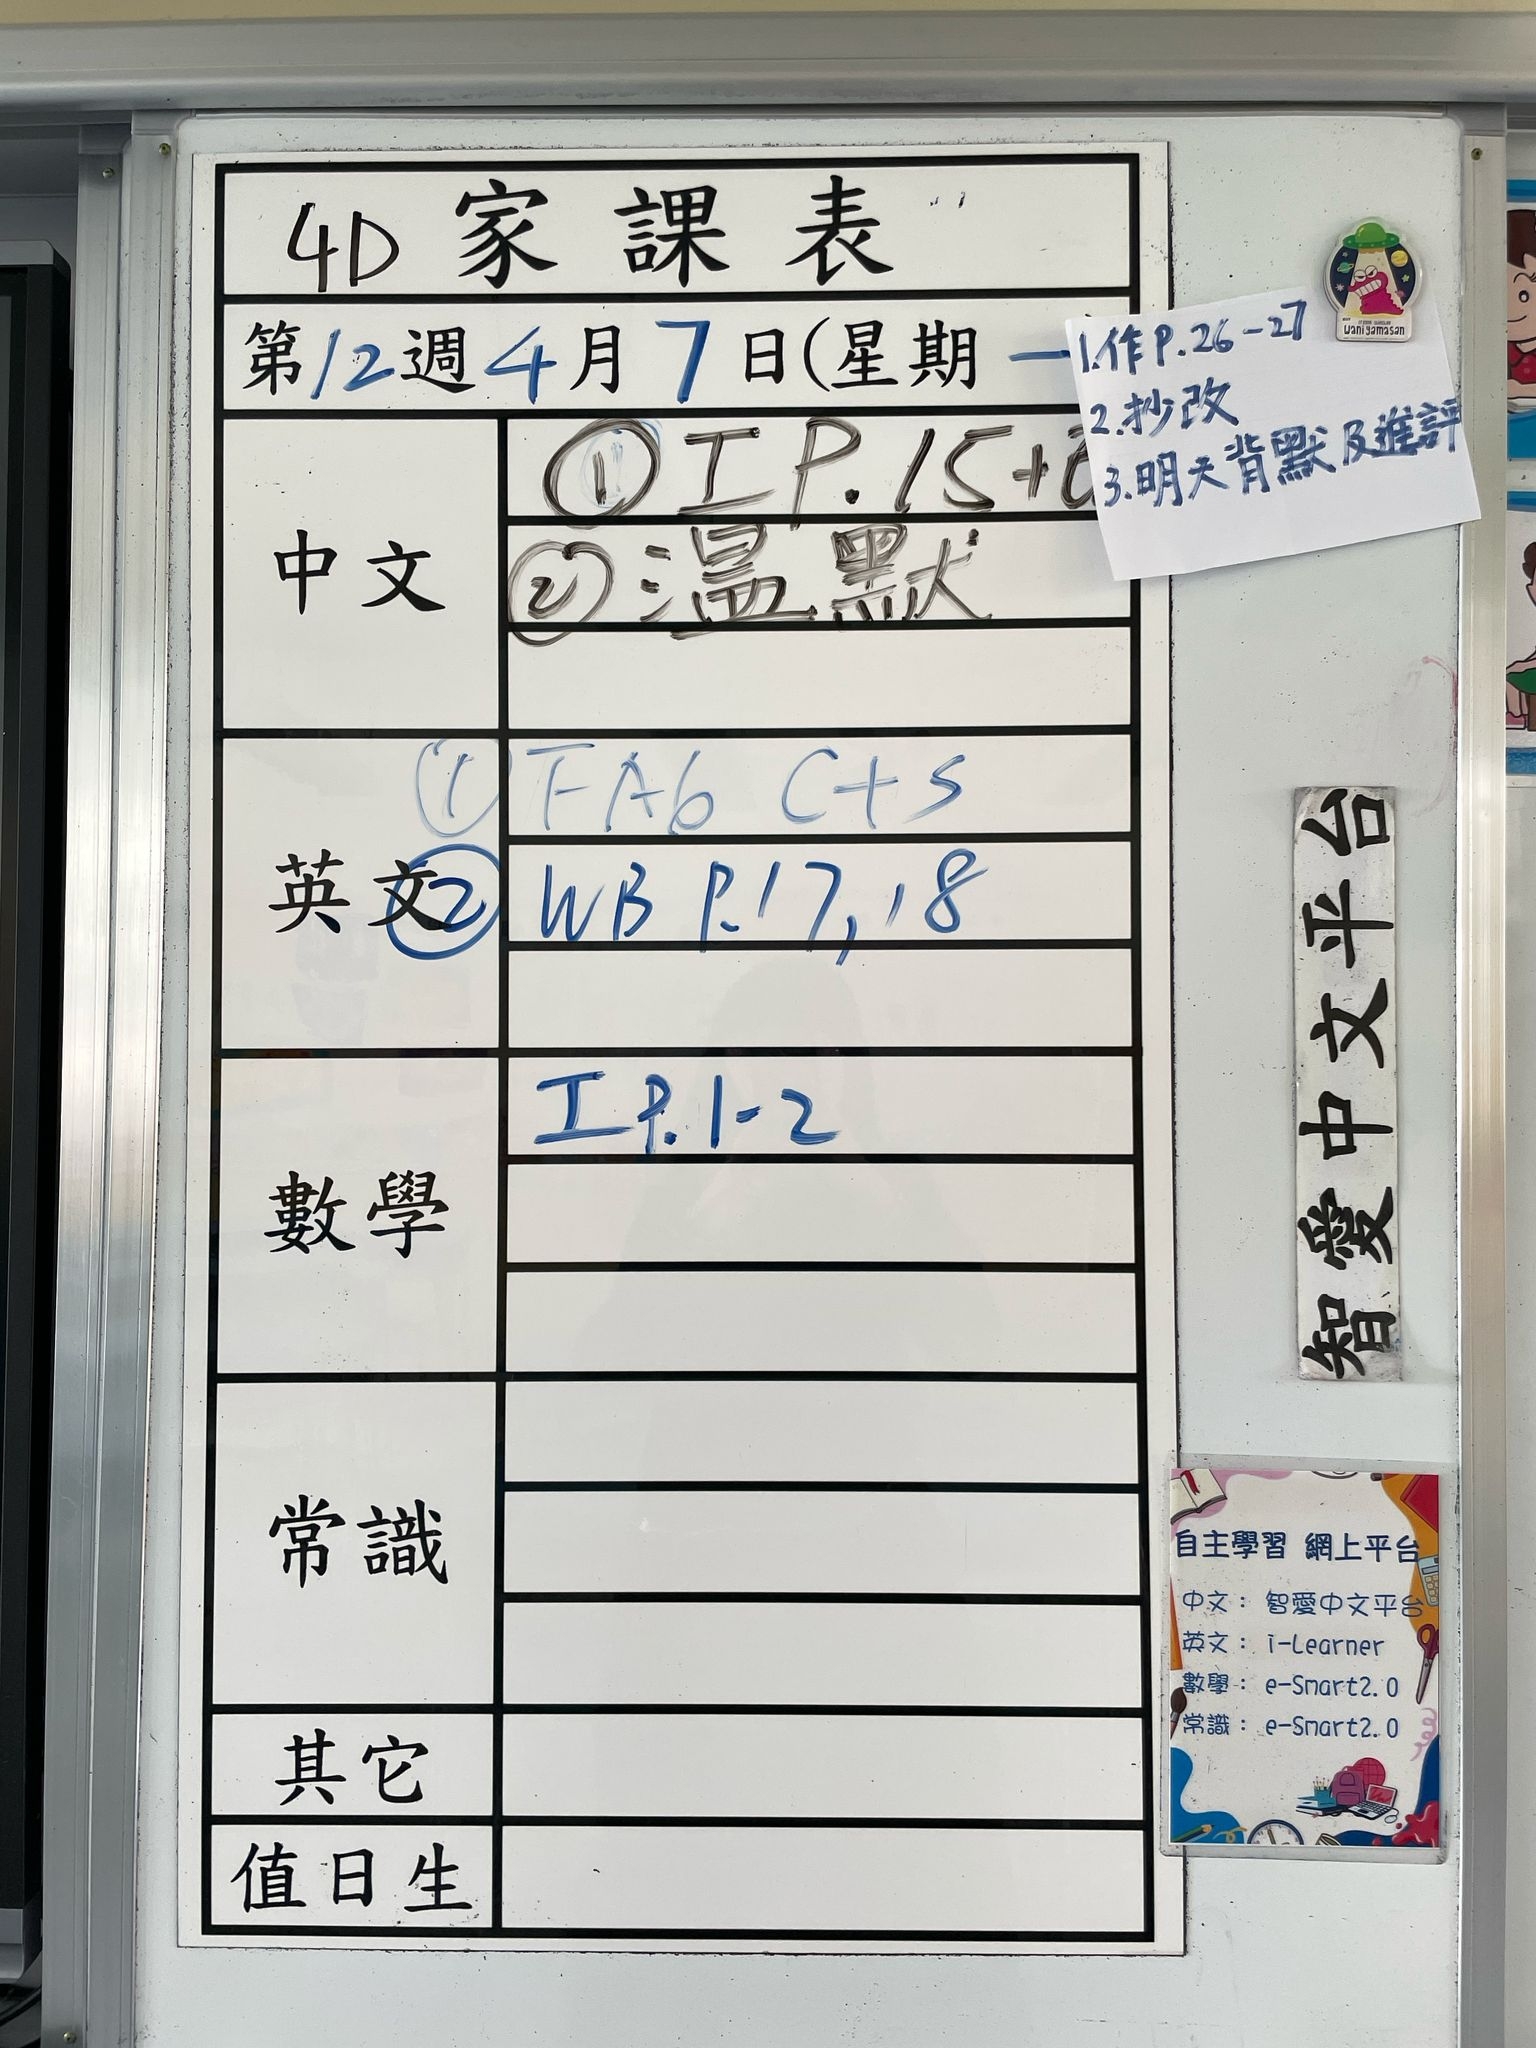 4D 家課表
第12週 4月7日(星期一
1.作P.26-27
2.抄改
3.明天背默及進評
中文
① 工 P.15+
② 溫默
英文
① FA6 C+S
② WB P.17,18
數學
工 P.1-2
常識
其它
值日生
Waniyamasan
智愛中文平台
自主學習 網上平台
中文： 智愛中文平台
英文： i-Learner
數學： e-Smart2.0
常識： e-Smart2.0